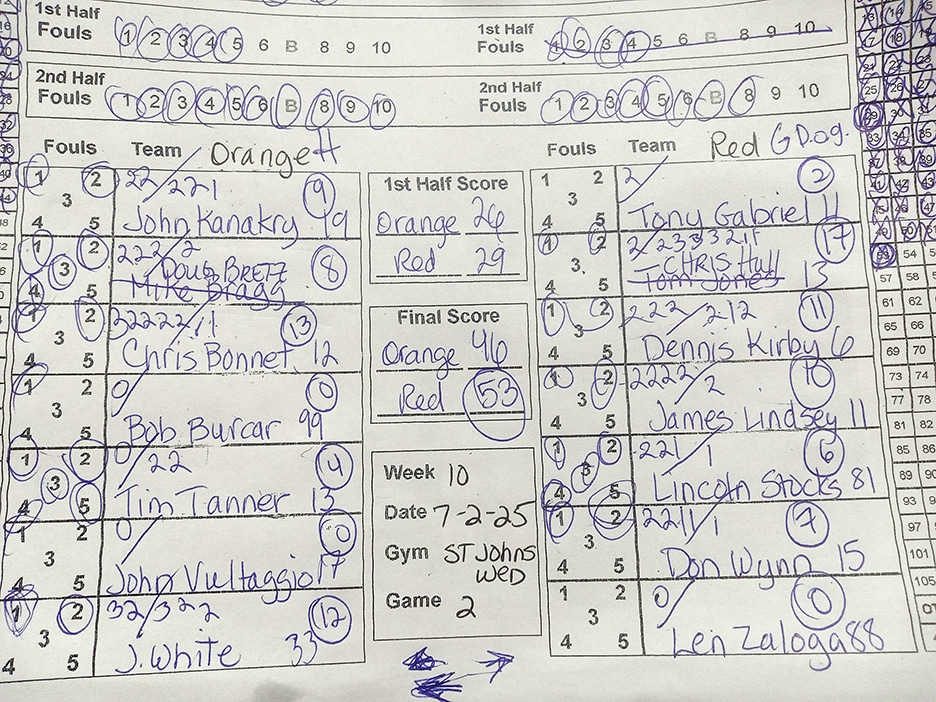 1st Half Fouls 1 2 3 4 5 6 B 8 9 10
1st Half Fouls 1 2 3 4 5 6 B 8 9 10
2nd Half Fouls 1 2 3 4 5 6 B 8 9 10
2nd Half Fouls 1 2 3 4 5 6 B 8 9 10
Fouls Team Orange H
1 2 3 4 5
22/221 9
John Kanakry 99
1 2 3 4 5
222/2 8
Doug BRETZ
Mike Bragg
1 2 3 4 5
32222/11 13
Chris Bonnet 12
1 2 3 4 5
0/ 0
Bob Burcar 99
1 2 3 4 5
0/22 4
Tim Tanner 13
1 2 3 4 5
0/ 0
John Vultaggio 17
1 2 3 4 5
32/322 12
J. White 33
1st Half Score
Orange 26
Red 29
Final Score
Orange 46
Red 53
Week 10
Date 7-2-25
Gym ST JOHNS
WED
Game 2
Fouls Team Red G Dog.
1 2 3 4 5
2/ 2
Tony Gabriel 11
1 2 3 4 5
2/233321 17
CHRIS Hull
Tom Jones 13
1 2 3 4 5
222/212 11
Dennis Kirby 6
1 2 3 4 5
2222/2 10
James Lindsey 11
1 2 3 4 5
221/1 6
Lincoln Stocks 81
1 2 3 4 5
2211/1 7
Don Wynn 15
1 2 3 4 5
0/ 0
Len Zaloga 88
57 58
61 62
65 66
69 70
73 74
77 78
81 82
85 86
89 90
93
97
101
105